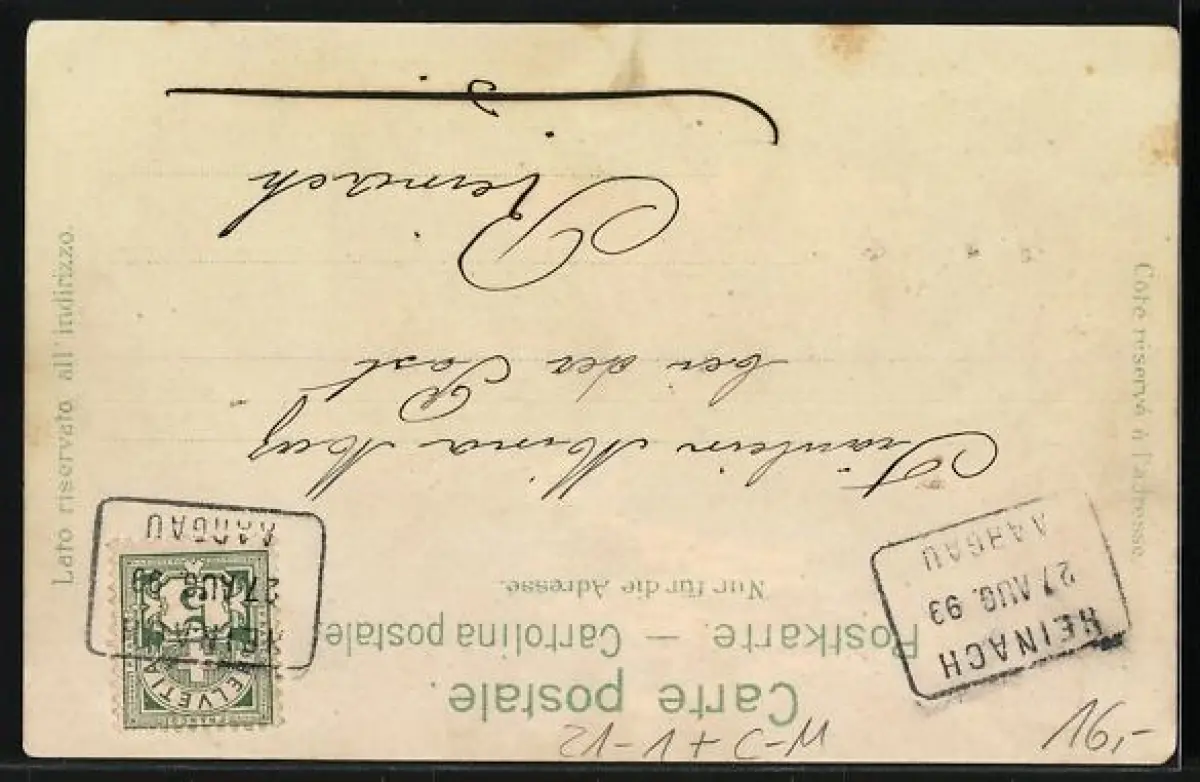 Carte postale.
Postkarte. — Cartolina postale.
Nur für die Adresse.
Côté réservé à l'adresse
Lato riservato all' indirizzo.
REINACH
27 AUG. 93
AARGAU
27 AUG. 93
AARGAU
HELVETIA
FRANCO
5
Fräulein Mina
bei der Post
Reinach